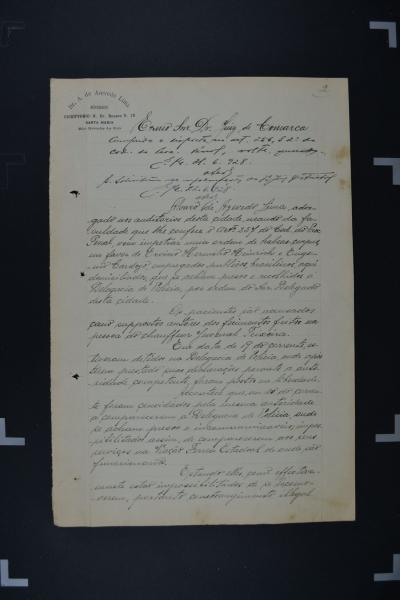 2
Dr. A. de Azevedo Lima
ADVOGADO
ESCRIPTORIO R. Dr. Bozano N. 10
SANTA MARIA
Exmo Snr. Dr. Juiz de Comarca
Cumprido o disposto no art. 356, § 2º do
Cod. do Proc. Penal, volte
6. 928.
Azevedo Lima, advo-
gado nos auditorios desta cidade, usando da fa-
culdade que lhe confere o Artº 354 do Cod. do Proc.
Penal, vem impetrar uma ordem de habeas-corpus
em favor de Ervino Germano Heinrichs e Euge-
nio Cardozo, empregados publicos, brasileiros, aqui
domiciliados, que se acham presos e recolhidos á
Delegacia de Policia, por ordem do Snr. Delegado
desta cidade.
Os pacientes são accusados
como suppostos autores dos ferimentos feitos na
pessoa do chauffeur Juvenal Teixeira.
Em data de 19 do corrente, es-
tiveram detidos na Delegacia de Policia, onde após
terem prestado suas declarações perante a auto-
ridade competente, foram postos em liberdade.
Acontece que em do corren-
te foram convidados pela mesma autoridade
a comparecerem á Delegacia de Policia, onde
se acham presos e incommunicaveis, impos-
sibilitados assim, de comparecerem aos seus
serviços na Viação Ferrea Estadoal de onde são
funccionarios.
Estando elles, como effectiva-
mente estão impossibilitados de se locomo-
verem, portanto constrangimento illegal